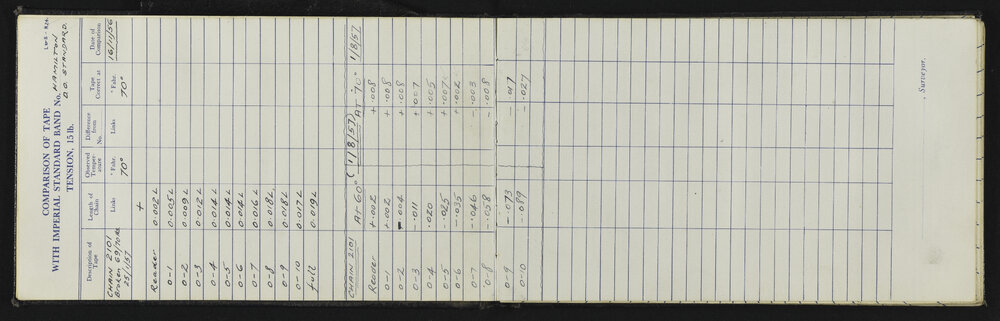 L & S - R26.
COMPARISON OF TAPE
WITH IMPERIAL STANDARD BAND No. HAMILTON
D.O. STANDARD.
TENSION, 15 lb.
Description of Tape | Length of Chain | Observed Temperature | Difference from No. | Tape Correct at | Date of Comparison
Links | ° Fahr. | Links | ° Fahr.
CHAIN 2101 | 70° | 70° | 16/11/56
Broken 69/70
25/1/57 | +
Reader 0.002 L
0-1 0.005 L
0-2 0.009 L
0-3 0.012 L
0-4 0.014 L
0-5 0.014 L
0-6 0.014 L
0-7 0.016 L
0-8 0.018 L
0-9 0.018 L
0-10 0.017 L
full 0.019 L
CHAIN 2101 AT 60° (1/8/57) AT 70° 1/8/57
Reader +.002 +.008
0-1 +.002 +.008
0-2 -.004 +.008
0-3 -.011 +.007
0-4 .020 +.005
0-5 -.025 +.007
0-6 -.035 +.002
0-7 -.046 -.003
0-8 -.058 -.008
0-9 -.073 -.017
0-10 -.089 -.027
, Surveyor.